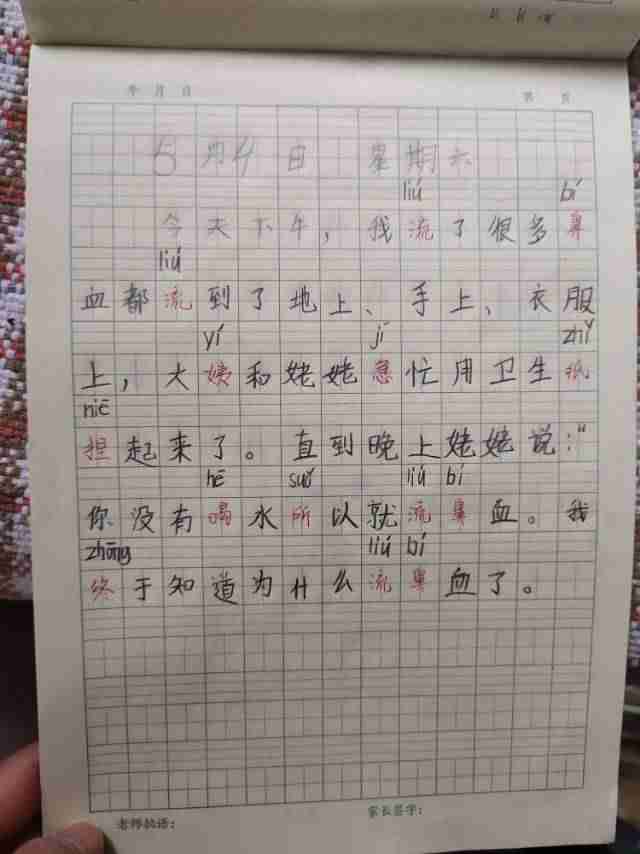 年 月 日 第 页
5月4日 星期六
liú bí
今天下午，我流了很多鼻
liú
血都流到了地上、手上、衣服
yí jí zhǐ
上，大姨和姥姥急忙用卫生纸
niē
捏起来了。直到晚上姥姥说：“
hē suǒ liú bí
你没有喝水所以就流鼻血。我
zhōng liú bí
终于知道为什么流鼻血了。
老师的话： 家长签字：